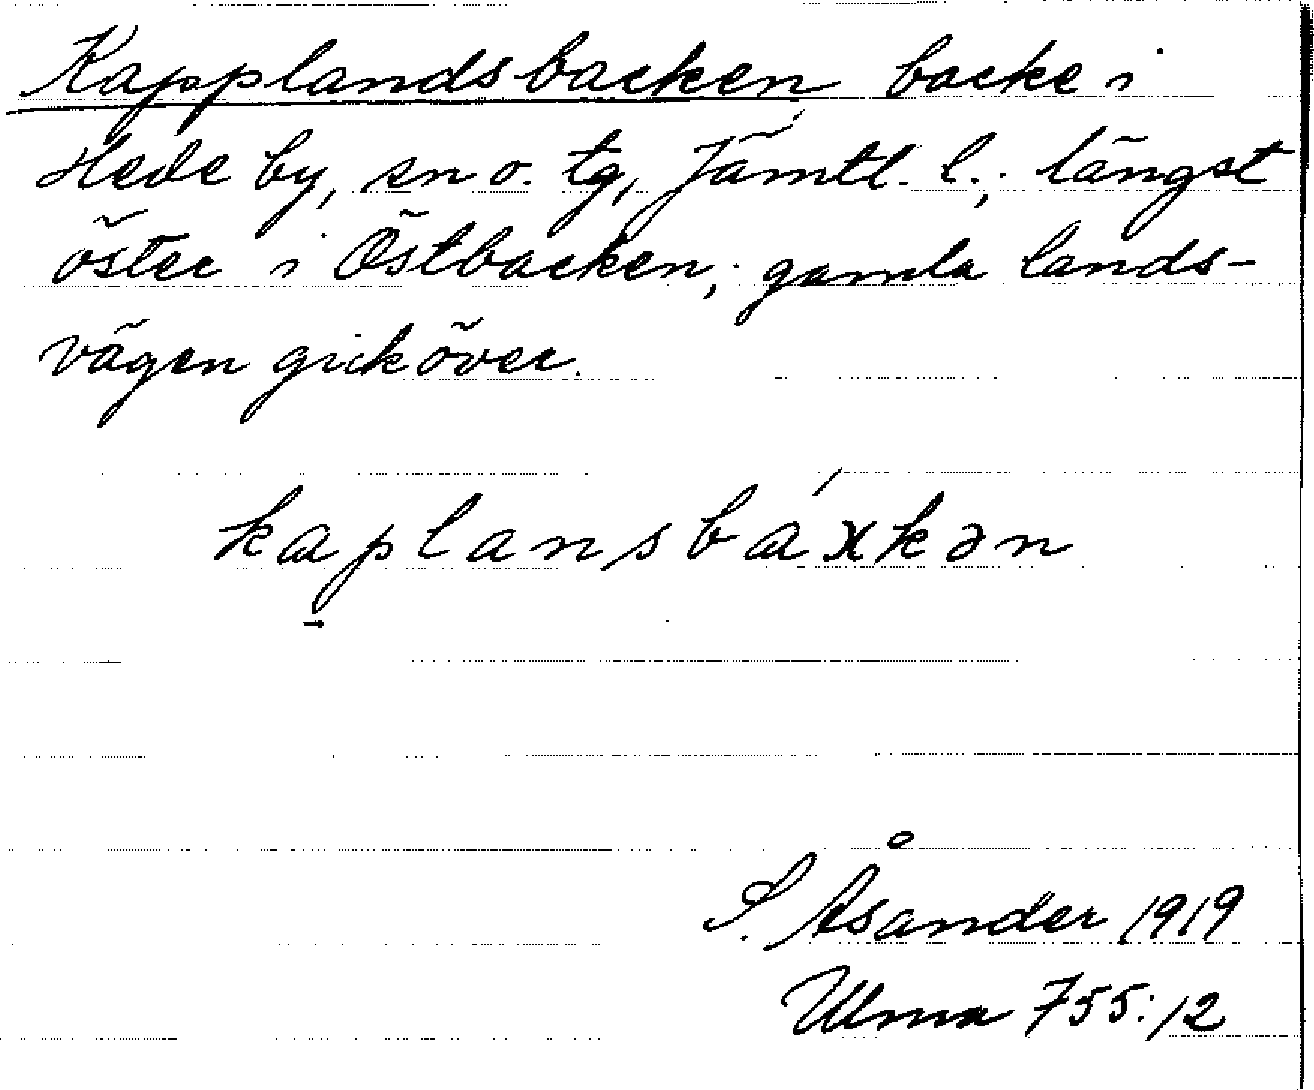 Kapplandsbacken backe i
Hede by, sn o. tg, Jämtl. l.; längst
öster i Östbacken; gamla lands-
vägen gick över.
kaplansbáxkən
S. Åsander 1919
Ulma 755:12